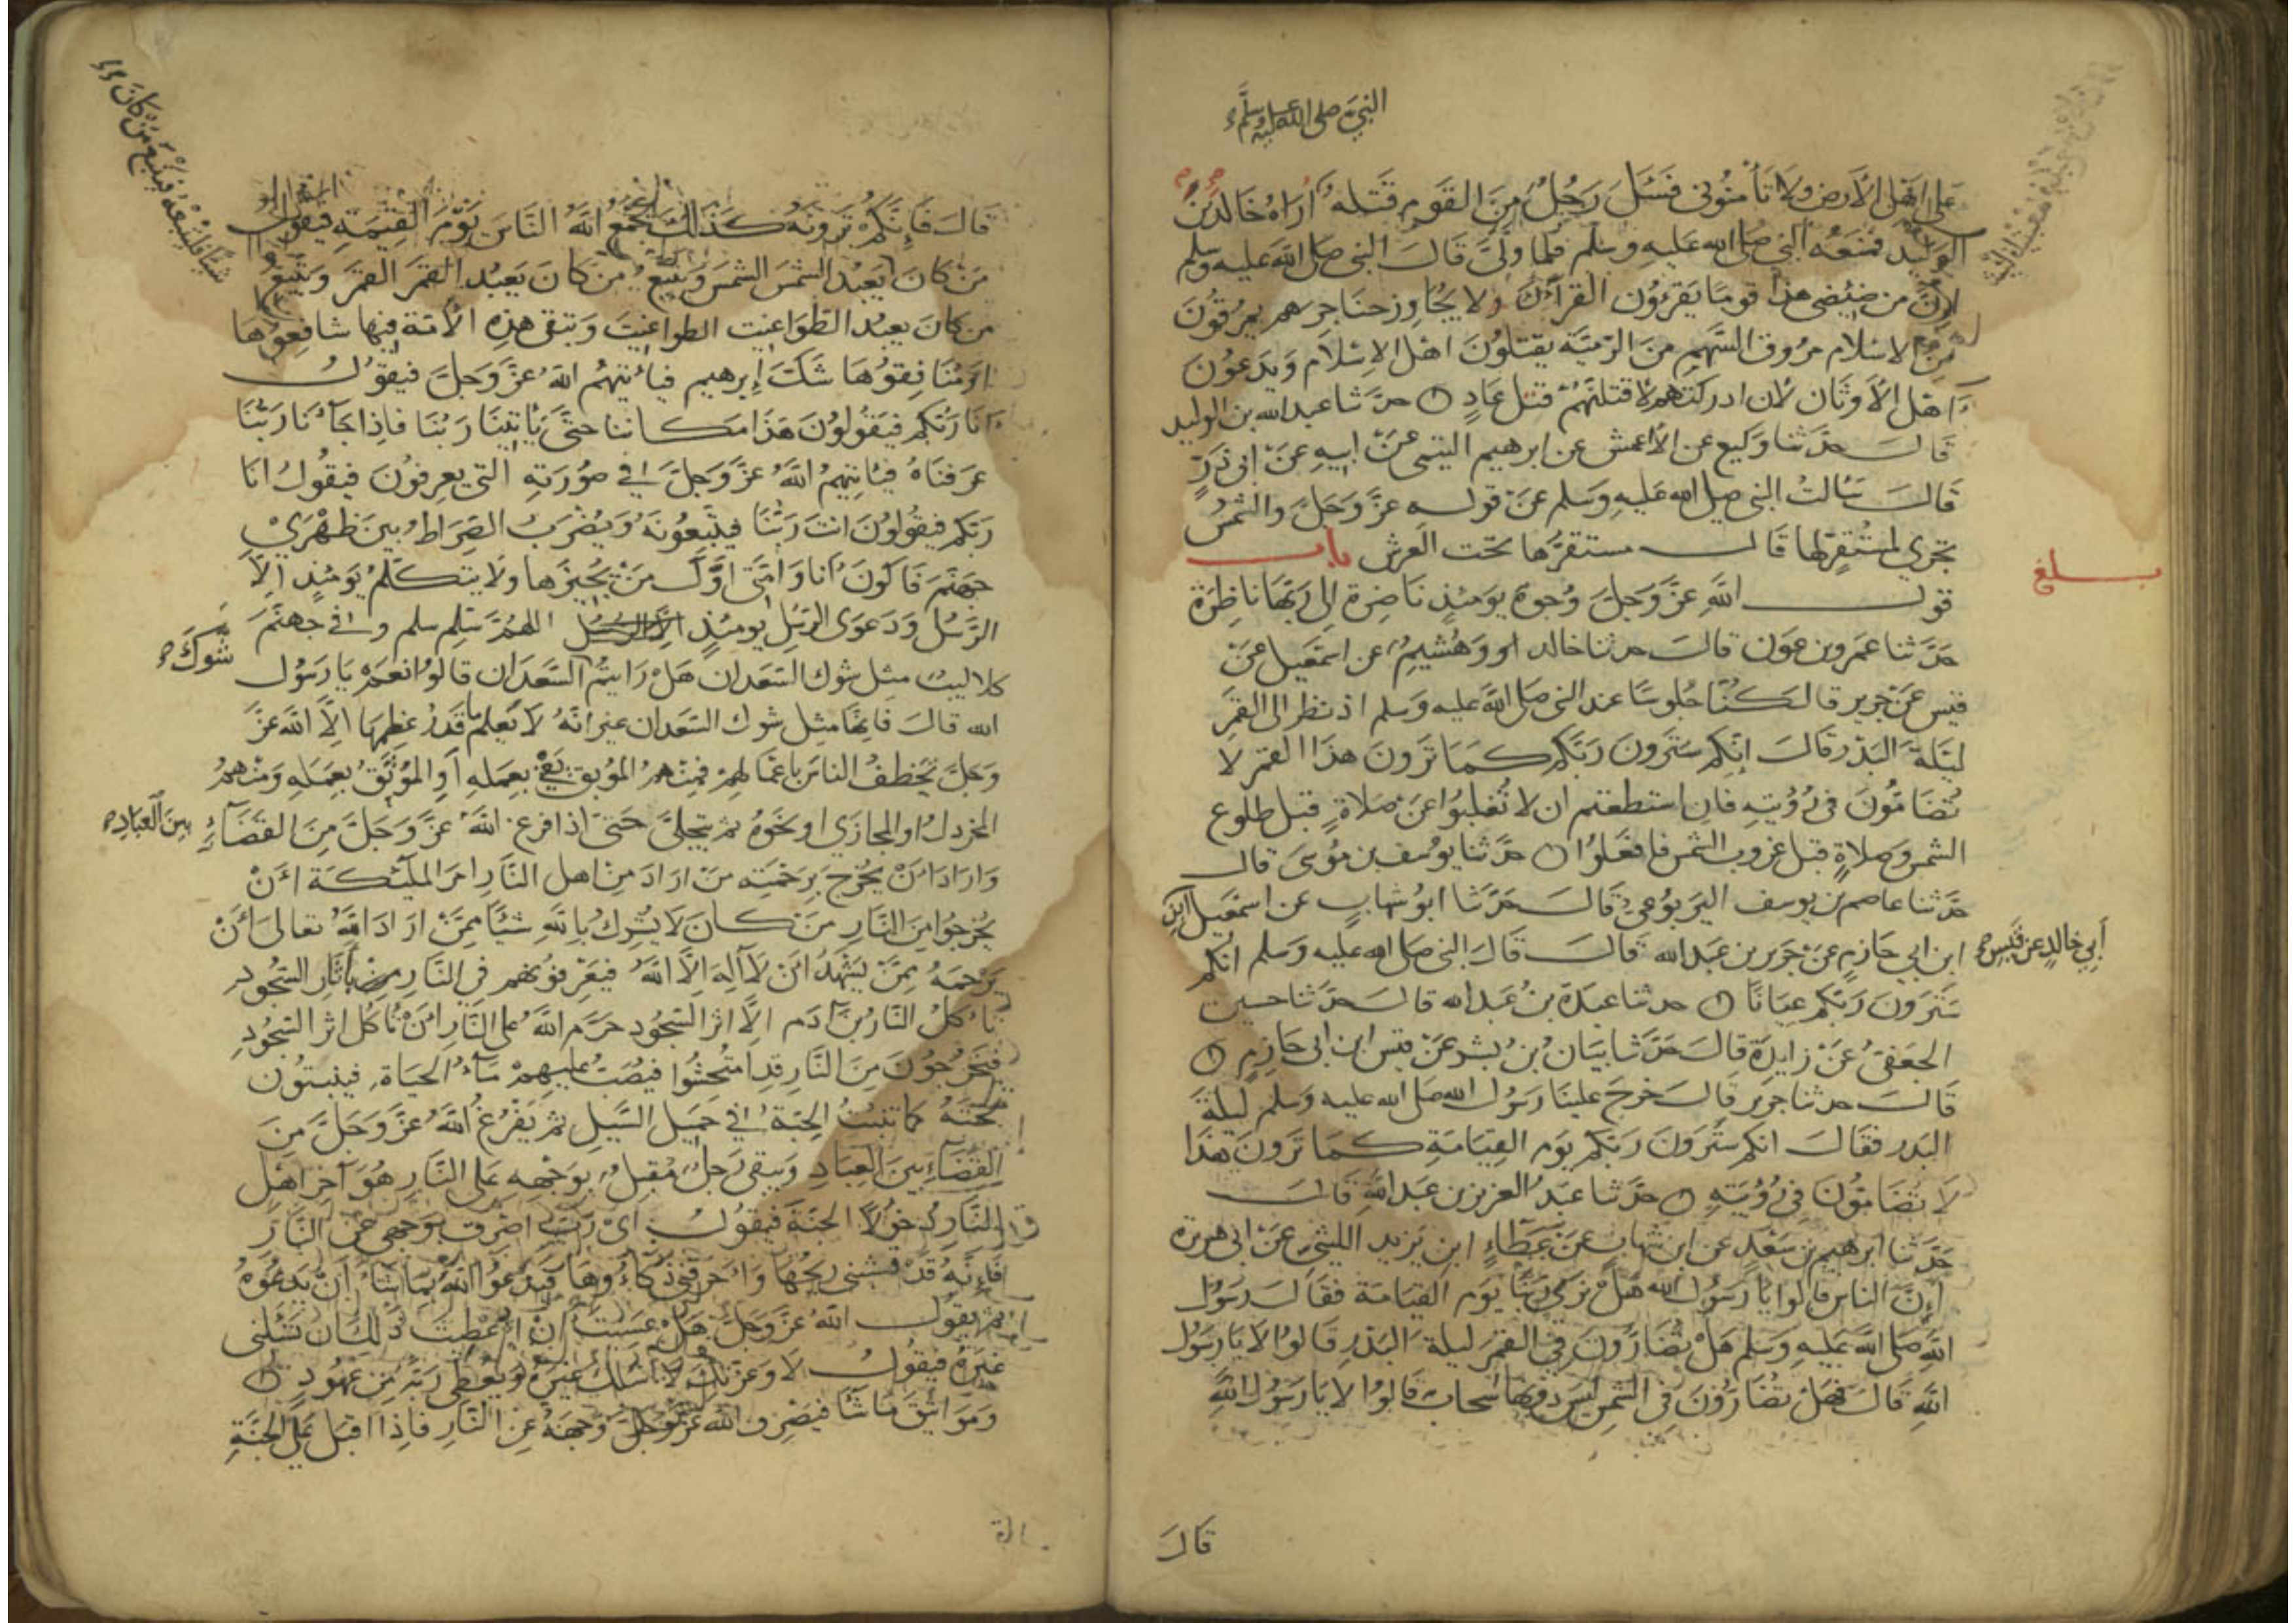 النبي صلى الله عليه وسلم
على اهل الارض ولا تأمنوني فسئل رجل من القوم قتله اراه خالد بن
الوليد فمنعه النبي صلى الله عليه وسلم فلما ولى قال النبي صلى الله عليه وسلم
ان من ضئضئ هذا قوما يقرؤون القرآن ولا يجاوز حناجرهم يمرقون
من الاسلام مروق السهم من الرمية يقتلون اهل الاسلام ويدعون
اهل الاوثان لان ادركتهم لاقتلنهم قتل عاد حدثنا عبد الله بن الوليد
قال حدثنا وكيع عن الاعمش عن ابرهيم التيمي عن ابيه عن ابي ذر
قال سالت النبي صلى الله عليه وسلم عن قوله عز وجل والشمس
تجري لمستقر لها قال مستقرها تحت العرش باب
بلغ
قول الله عز وجل وجوه يومئذ ناضرة الى ربها ناظرة
حدثنا عمرو بن عون قال حدثنا خالد او وهشيم عن اسمعيل عن
قيس عن جرير قال كنا جلوسا عند النبي صلى الله عليه وسلم اذ نظر الى القمر
ليلة البدر قال انكم سترون ربكم كما ترون هذا القمر لا
تضامون في رؤيته فان استطعتم ان لا تغلبوا عن صلاة قبل طلوع
الشمس وصلاة قبل غروب الشمس فافعلوا حدثنا يوسف بن موسى قال
حدثنا عاصم بن يوسف اليربوعي قال حدثنا ابو شهاب عن اسمعيل ابن
أبي خالد عن قيس
ابن ابي حازم عن جرير بن عبد الله قال قال النبي صلى الله عليه وسلم انكم
سترون ربكم عيانا حدثنا عبدة بن عبد الله قال حدثنا حسين
الجعفي عن زايدة قال حدثنا بيان بن بشر عن قيس ابن ابي حازم
قال حدثنا جرير قال خرج علينا رسول الله صلى الله عليه وسلم ليلة
البدر فقال انكم سترون ربكم يوم القيامة كما ترون هذا
لا تضامون في رؤيته حدثنا عبد العزيز بن عبد الله قال
حدثنا ابرهيم بن سعد عن ابن شهاب عن عطاء ابن يزيد الليثي عن ابي هريرة
ان الناس قالوا يا رسول الله هل نرى ربنا يوم القيامة فقال رسول
الله صلى الله عليه وسلم هل تضارون في القمر ليلة البدر قالوا لا يا رسول
الله قال فهل تضارون في الشمس ليس دونها سحاب قالوا لا يا رسول الله
قال
شيئا فليتبعه فيتبع من كان
قال فإنكم ترونه كذلك يجمع الله الناس يوم القيمة فيقول
من كان يعبد الشمس الشمس ويتبع من كان يعبد القمر القمر ويتبع
من كان يعبد الطواغيت الطواغيت وتبقى هذه الامة فيها شافعوها
او منافقوها شك إبرهيم فيأتيهم الله عز وجل فيقول
انا ربكم فيقولون هذا مكاننا حتى يأتينا ربنا فاذا جاءنا ربنا
عرفناه فيأتيهم الله عز وجل في صورته التي يعرفون فيقول انا
ربكم فيقولون انت ربنا فيتبعونه ويضرب الصراط بين ظهري
جهنم فاكون أنا وامتي اول من يجيزها ولا يتكلم يومئذ الا
الرسل ودعوى الرسل يومئذ اللهم سلم سلم وفي جهنم
كلاليب مثل شوك السعدان هل رايتم السعدان قالوا نعم يا رسول
شوك
الله قال فانها مثل شوك السعدان غير انه لا يعلم ما قدر عظمها الا الله عز
وجل تخطف الناس باعمالهم فمنهم الموبق بقي بعمله او الموثق بعمله ومنهم
المخردل او المجازى او نحوه ثم يتجلى حتى اذا فرغ الله عز وجل من القضاء
بين العباد
واراد ان يخرج برحمته من اراد من اهل النار امر المليكة ان
يخرجوا من النار من كان لا يشرك بالله شيئا ممن اراد الله تعالى أن
يرحمه ممن يشهد ان لا اله الا الله فيعرفونهم في النار بأثار السجود
تأكل النار بن آدم الا اثر السجود حرم الله على النار ان تأكل اثر السجود
فيخرجون من النار قد امتحشوا فيصب عليهم ماء الحياة فينبتون
تحته كما تنبت الحبة في حميل السيل ثم يفرغ الله عز وجل من
القضاء بين العباد ويبقى رجل مقبل بوجهه على النار هو آخر اهل
النار دخولا الجنة فيقول اي رب اصرف بوجهي عن النار
فانه قد قشبني ريحها واحرقني ذكاؤها فيدعوا الله بما شاء أن يدعوه
ثم يقول الله عز وجل هل عسيت ان اعطيت ذلك ان تسئلني
غيره فيقول لا وعزتك لا اسئلك غيره ويعطي ربه من عهود
ومواثيق ما شا فيصرف الله عز وجل وجهه عن النار فاذا اقبل على الجنة